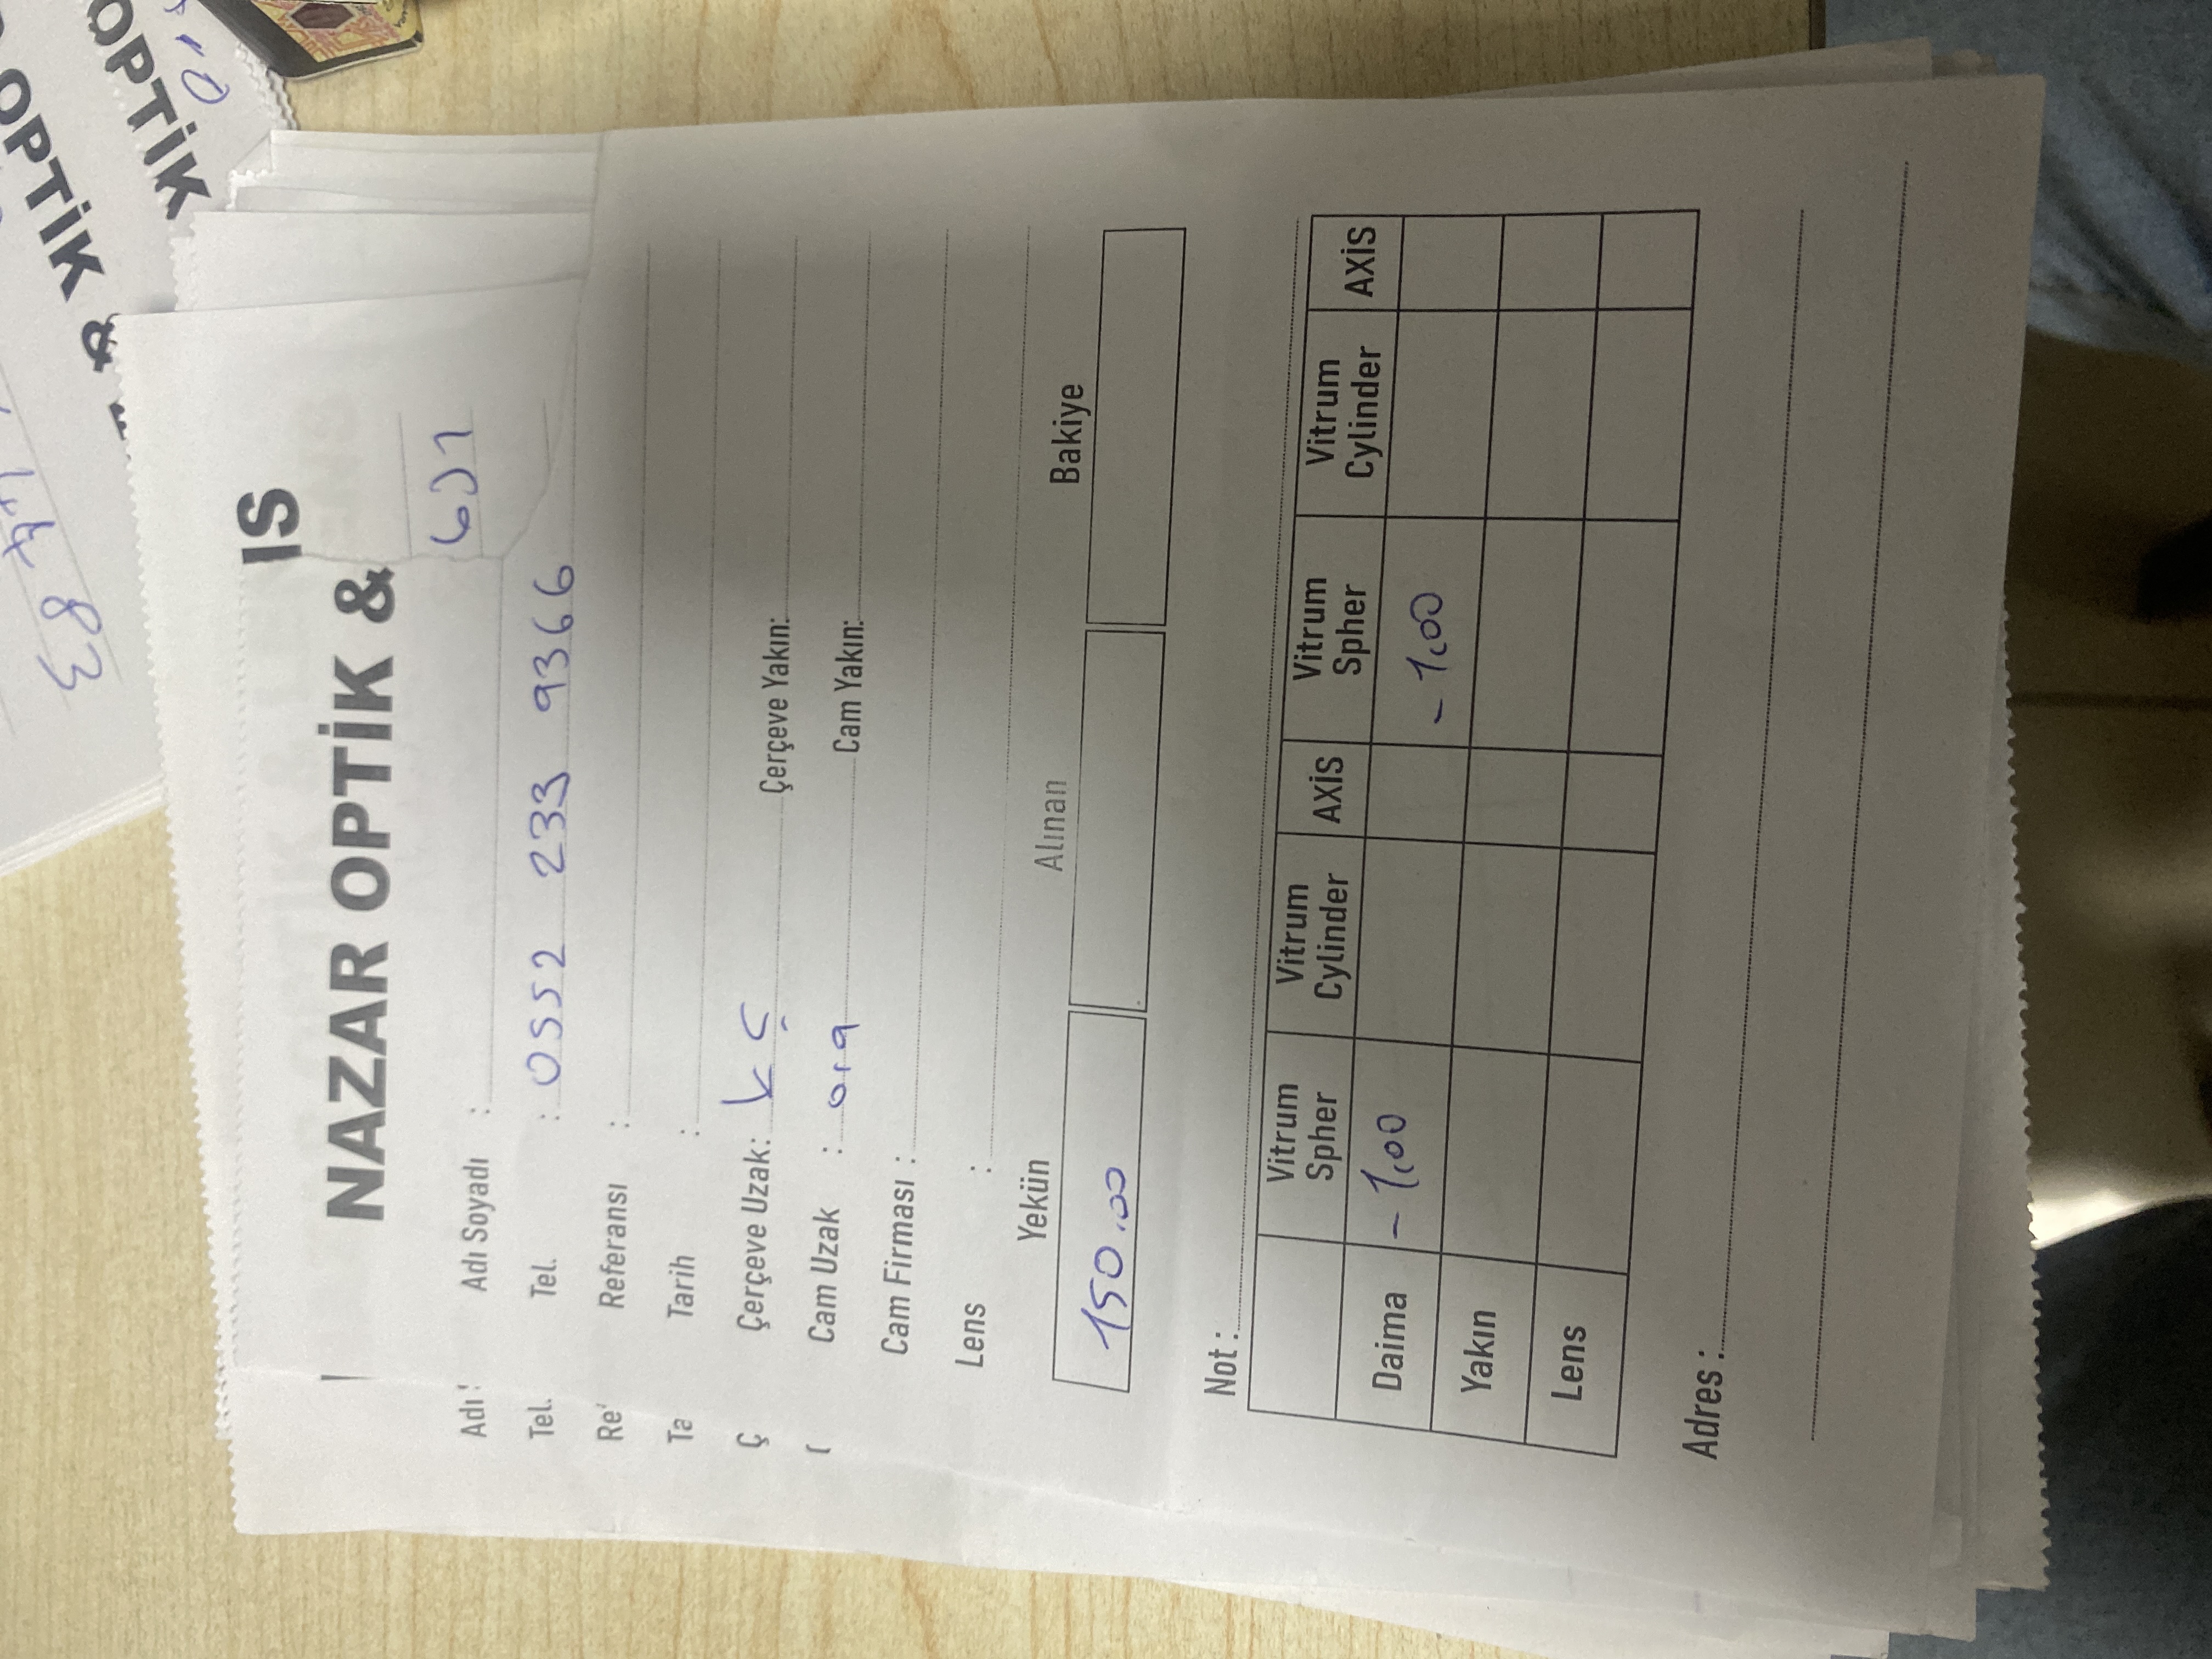 83
OPTİK &
OPTİK
IS
NAZAR OPTİK &
Adı Soyadı :
Tel. : 0552 233 9366
Referansı :
Tarih :
Çerçeve Uzak: KÇ Çerçeve Yakın:
Cam Uzak : org Cam Yakın:
Cam Firması :
Lens :
Yekün Alınan Bakiye
150.00
Not :
Vitrum Spher Vitrum Cylinder AXİS Vitrum Spher Vitrum Cylinder AXİS
Daima -1.00 -1.00
Yakın
Lens
Adres :
Adı
Tel.
Re
Ta
Ç